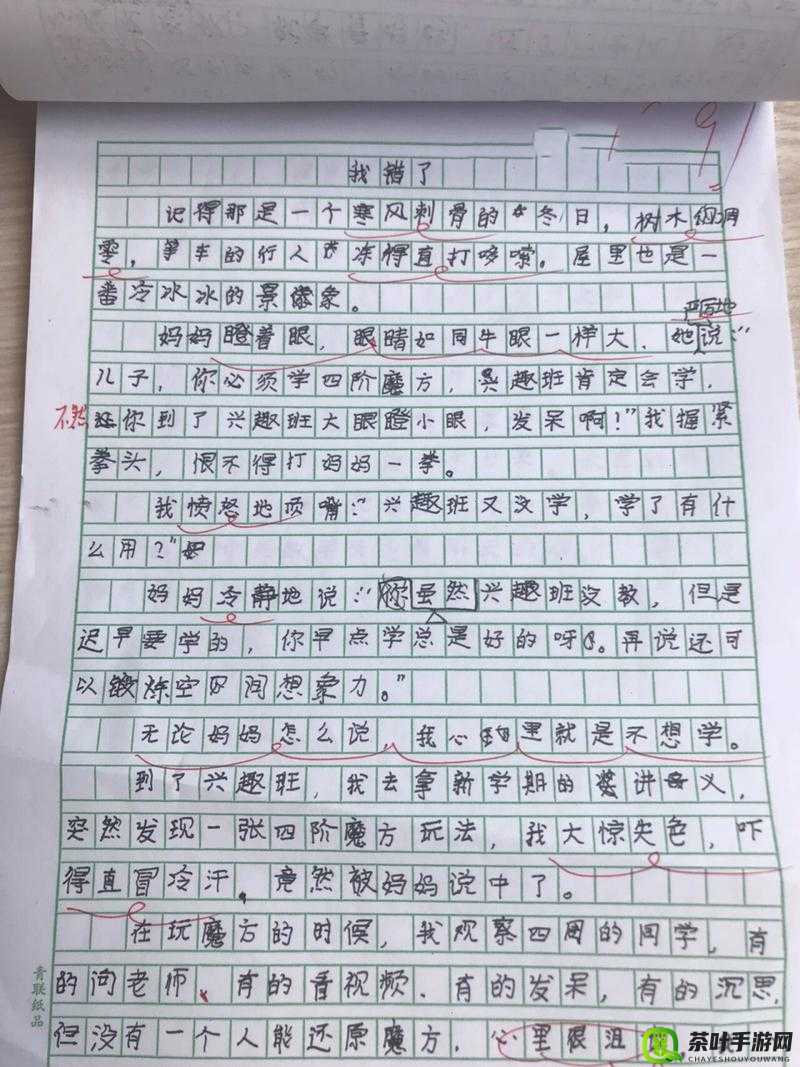 91
我错了
记得那是一个寒风刺骨的冬日，树木凋
零，等车的行人冻得直打哆嗦。屋里也是一
番冷冰冰的景象。
严厉地
妈妈瞪着眼，眼睛如同牛眼一样大，她说：“
儿子，你必须学四阶魔方，兴趣班肯定会学，
不然你到了兴趣班大眼瞪小眼，发呆啊！”我握紧
拳头，恨不得打妈妈一拳。
我愤怒地顶嘴：“兴趣班又没学，学了有什
么用？”
妈妈冷静地说：“你虽然兴趣班没教，但是
迟早要学的，你早点学总是好的呀。再说还可
以锻炼空间想象力。”
无论妈妈怎么说，我心里就是不想学。
到了兴趣班，我去拿新学期的讲义，
突然发现一张四阶魔方玩法，我大惊失色，吓
得直冒冷汗，竟然被妈妈说中了。
在玩魔方的时候，我观察四周的同学，有
的问老师、有的看视频、有的发呆，有的沉思，
但没有一个人能还原魔方，心里很沮
青联纸品
茶叶手游网
CHAYESHOUYOUWANG